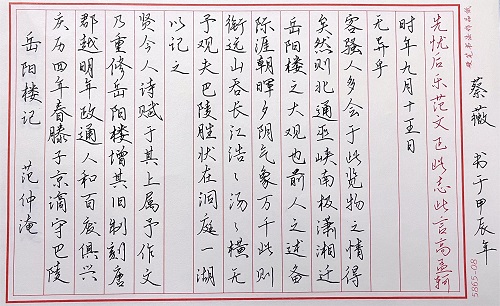 岳阳楼记 范仲淹
庆历四年春滕子京谪守巴陵
郡越明年政通人和百废俱兴
乃重修岳阳楼增其旧制刻唐
贤今人诗赋于其上属予作文
以记之
予观夫巴陵胜状在洞庭一湖
衔远山吞长江浩々汤々横无
际涯朝晖夕阴气象万千此则
岳阳楼之大观也前人之述备
矣然则北通巫峡南极潇湘迁
客骚人多会于此览物之情得
无异乎
时年九月十五日
先忧后乐范文正此志此言高孟轲
蔡薇 书于甲辰年
硬笔书法作品纸
5865-08